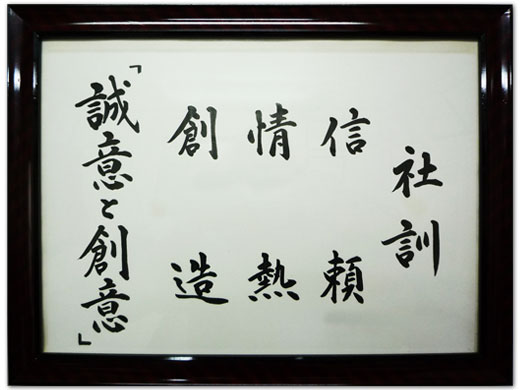 社訓
信頼
情熱
創造
「誠意と創意」